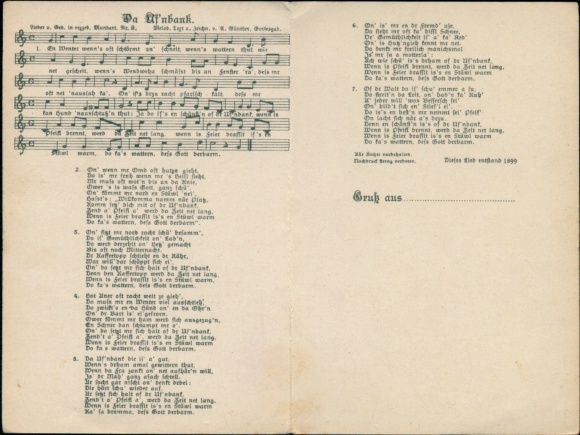 Da Uf'nbank.
Lieder u. Ged. in erzgeb. Mundart. Nr. 8.
Melod., Text u. Zeichn. v. A. Günther, Gottesgab.
1. En Wenter wenn's oft schtürmt an schneit, wenn's wattern thut wie
net gescheit, wenn's Windwaha schmässt bis an Fenster ra, dass me
oft net nausiah ka'. On if's drza racht pfarisch kalt, dess me
kan Hand 'nausschtrek'n thut: Ja do is's en schönst'n of dr Uf'nbank, wenn is
Pfeifl brennt, werd da Zeit net lang, wenn is Feier drasslt is's e
Stüwl warm, do ka's wattern, dess Gott derbarm.
2. On' wenn me Omd oft hatzn gieht,
Do is' me freh wenn me 's Heisl sieht,
Me muss oft wot'n bis an da Knie,
Ower 's is wass Gott, ganz schü'.
On' kimmt me nord en Stüwl 'nei',
Hasst's: „Willkomma namm när Platz,
Kamm setz' dich mit of dr Uf'nbank,
Zend a' Pfeifl a' werd da Zeit net lang.
Wenn is Feier drasslt is's en Stüwl warm
Do ka's wattern, dess Gott derbarm“.
3. On' sitzt me nord racht schü' besamm',
Do is' Gemüthlichkeit an' Lad'n,
Do werd derzehlt an' Hetz' gemacht
Bis oft noch Mitternacht.
Dr Kaffeetopp schtieht en dr Röhr,
War will dar schöppt sich ei',
On' do setzt me sich halt of dr Uf'nbank,
Denn ben Kaffeetopp werd da Zeit net lang,
Wenn is Feier drasslt is's en Stüwl warm
Do ka's wattern, dess Gott derbarm.
4. Hot Aner oft racht weit ze gieh',
Do muss me en Wenter viel ausschtieh',
Do zwickt's en da Händ an' en da Ohr'n
On' dr Bart is' ei'gefrorn.
Ower kimmt me ham werd sich ausgezog'n,
En Schnee dan schtampt me o'.
On' do setzt me sich halt of dr Uf'nbank,
Zend't a' Pfeifl a', werd da Zeit net lang,
Wenn is Feier drasslt is's en Stüwl warm
Do ka's wattern, dess Gott derbarm.
5. Da Uf'nbank die is' a' gut,
Wenn's deham amol gewittern thut,
Wenn da Fra zankt on' net aufhär'n will,
Ja' dr Mah' ganz afach schtell.
Ar hocht gar nischt an' denkt debei:
Die härt schu' wieder auf.
Ar setzt sich halt of dr Uf'nbank,
Zend't a' Pfeifl a', werd da Zeit net lang,
Wenn is Feier drasslt is's en Stüwl warm
Ka' sa brumma, dess Gott derbarm.
6. On' is' me en de Fremd' uft,
Do sieht me oft ka' bissl Schnee.
De' Gemüthlichkeit is' a' ka' Red'
On' is Hutz'ngieh kennt me net.
Do denkt me freilich manichsmol
Ja' me sa a motterla':
Ach wie schü' is's dehamm of dr Uf'nbank,
Wenn is Pfeifl brennt, werd da Zeit net lang,
Wenn is Feier drasslt is's en Stüwl warm
Do ka's wattern, dess Gott derbarm.
7. Of dr Walt do is' schu' emmer a so,
Do streit'n da Leit, on' hab'n ka' Ruh'
A' jeder will 'was Besserscht sei'
On' bild't sich en' Stief'l ei'!
Do is's en best'n vr nemmt sei' Pfeif'
On lacht sich när a'n drza.
Denn en schönst'n is's of dr Uf'nbank,
Wenn is Pfeifl brennt, werd da Zeit net lang,
Wenn is Feier drasslt is's en Stüwl warm
Do ka's wattern, dess Gott derbarm.
Alle Rechte vorbehalten.
Nachdruck streng verboten.
Dieses Lied entstand 1899
Gruß aus